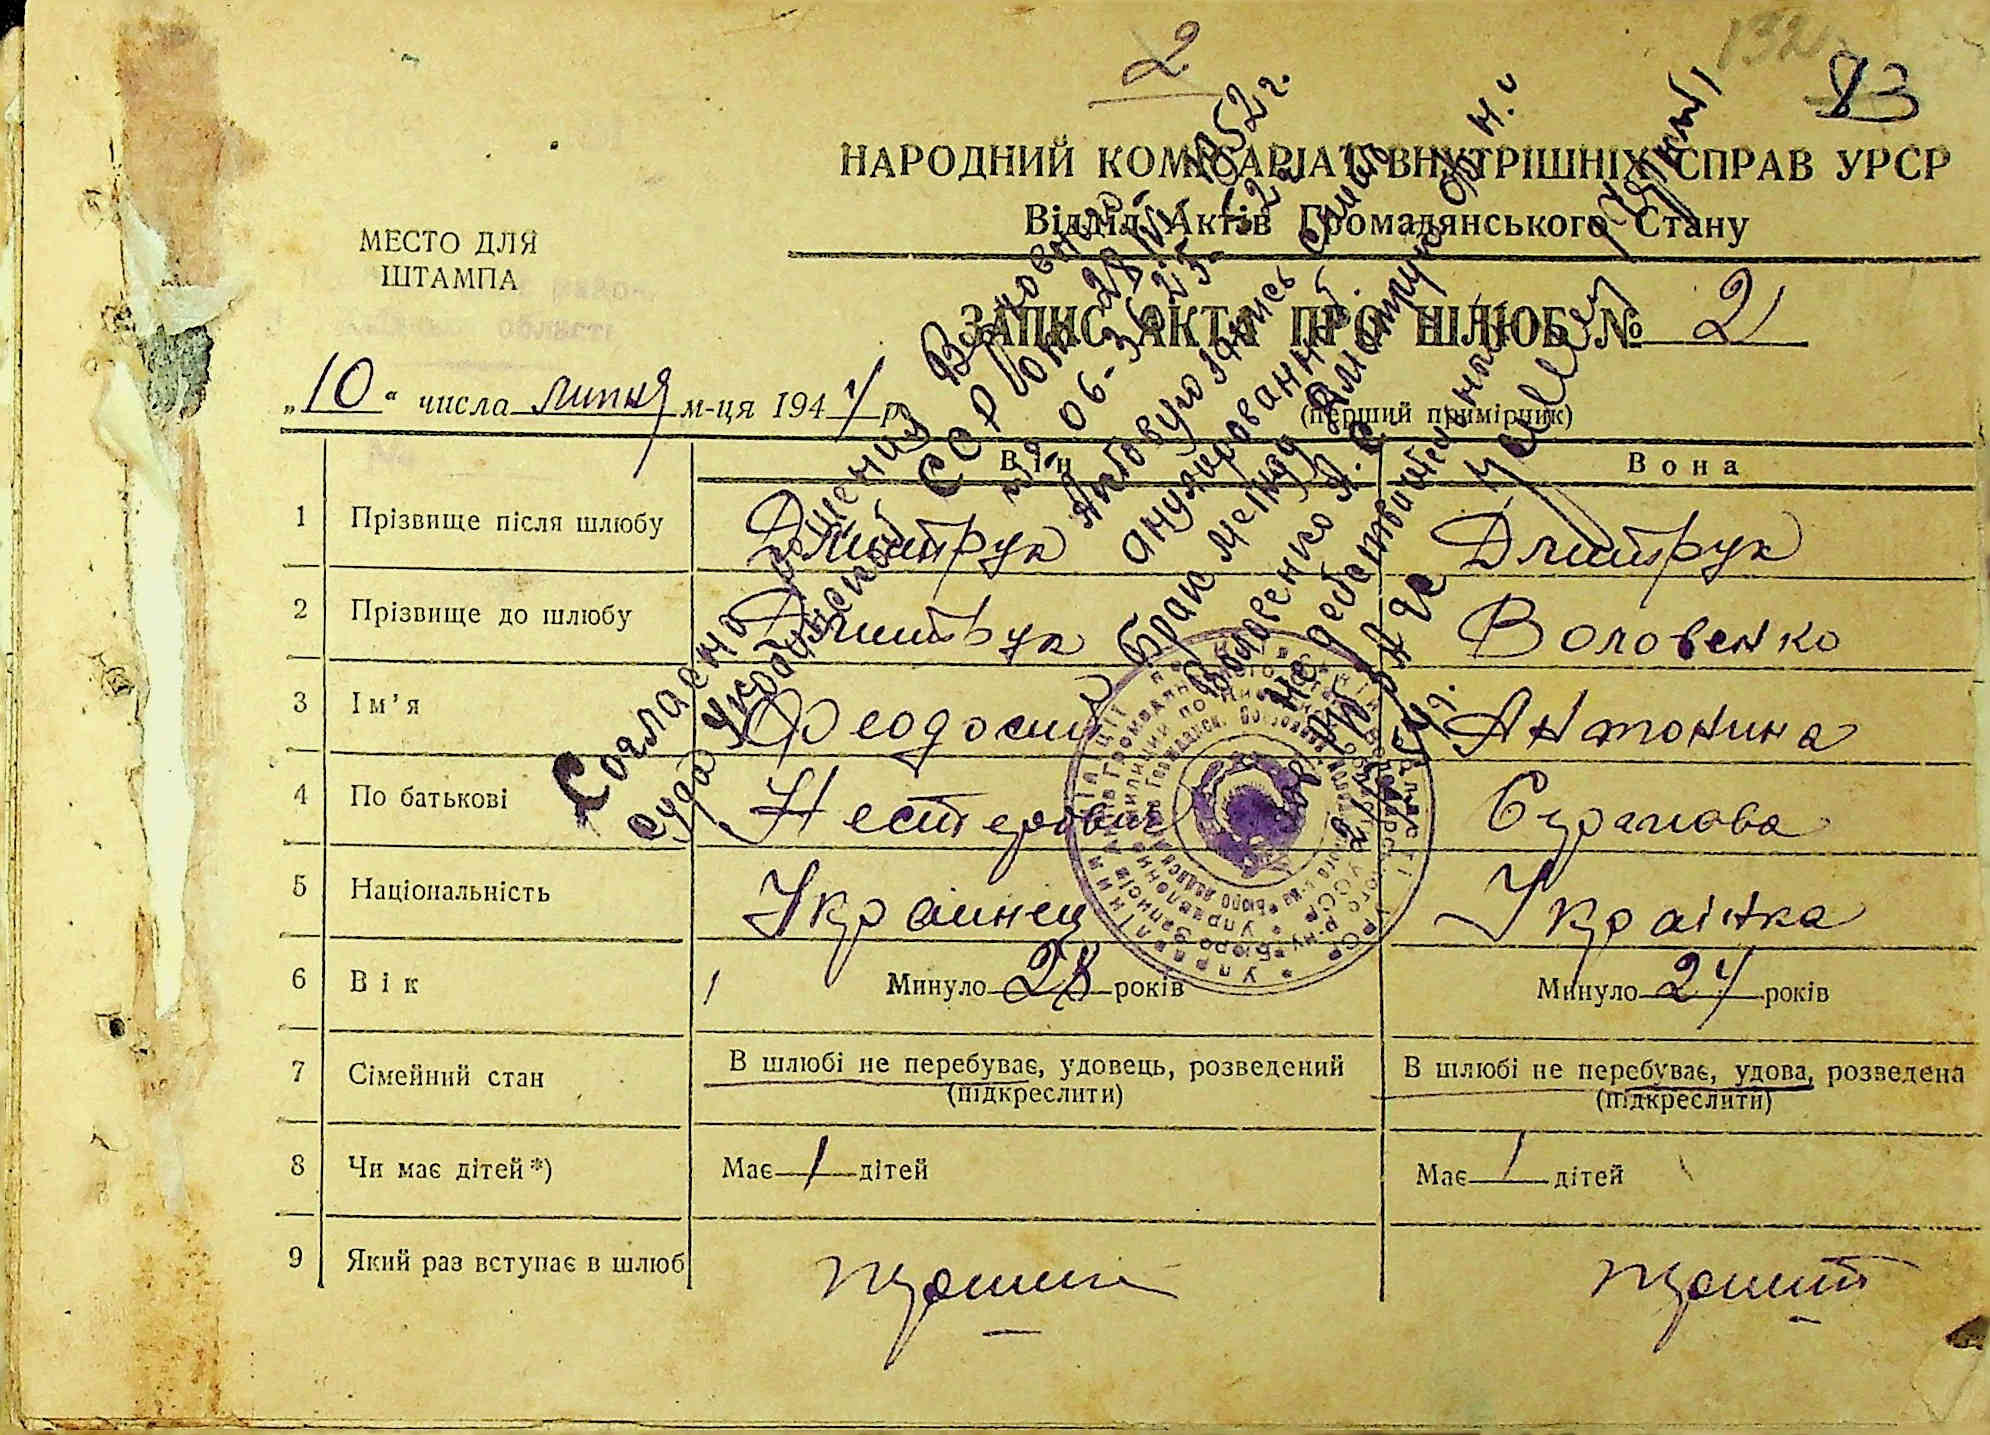 2
132
83
НАРОДНИЙ КОМІСАРІАТ ВНУТРІШНІХ СПРАВ УРСР
Відділ Актів Громадянського Стану
МЕСТО ДЛЯ
ШТАМПА
области
ЗАПИС АКТА ПРО ШЛЮБ № 21
„10“ числа липня м-ця 1941 р.
(перший примірник)
Він
Вона
1 Прізвище після шлюбу Дмитрук Дмитрук
2 Прізвище до шлюбу Дмитрук Воловенко
3 Ім’я Феодосий Антонина
4 По батькові Нестерович
5 Національність Украинец Українка
6 Вік Минуло 28 років Минуло 24 років
7 Сімейний стан В шлюбі не перебуває, удовець, розведений В шлюбі не перебуває, удова, розведена
(підкреслити) (підкреслити)
8 Чи має дітей *) Має 1 дітей Має 1 дітей
9 Який раз вступає в шлюб
Согласно решения Верховного
суда Украинской ССР от 28 1952 г.
за № 06-3
Актовую запись считать
анулированной.
Брак между Дмитрук Ф. Н. и
Воловенко А. С.
не действительный